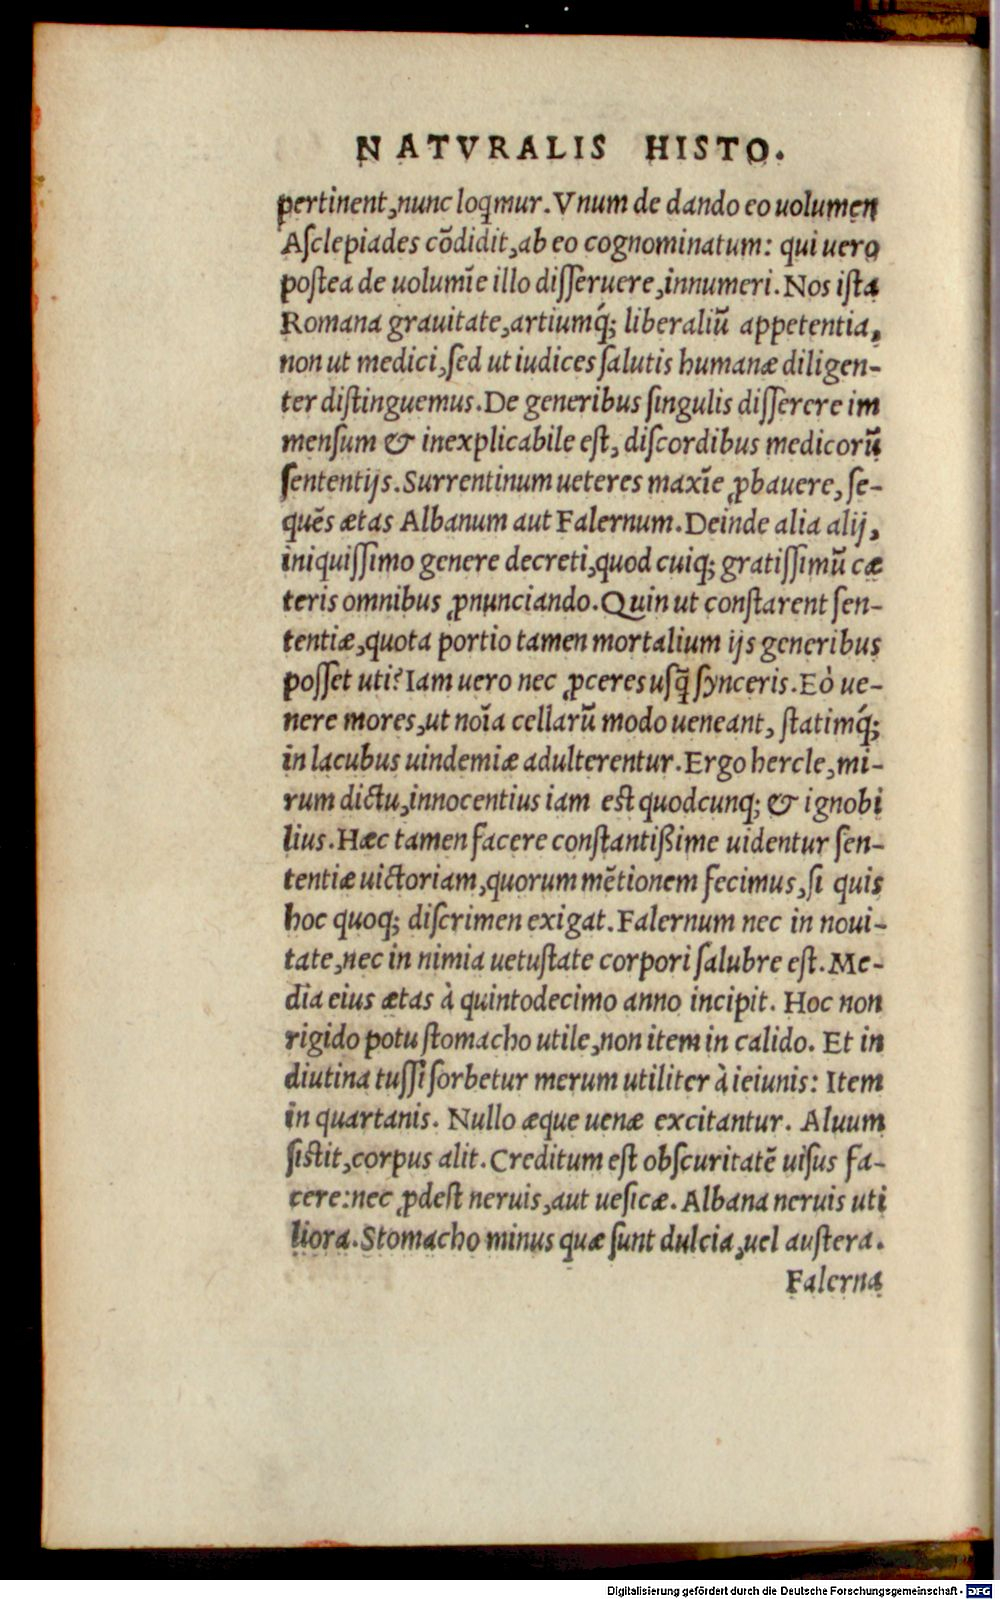 NATVRALIS HISTO.
pertinent, nunc loq̃mur. Vnum de dando eo uolumen
Aſclepiades cõdidit, ab eo cognominatum: qui uero
poſtea de uolumĩe illo diſſeruere, innumeri. Nos iſta
Romana grauitate, artiumq́; liberaliũ appetentia,
non ut medici, ſed ut iudices ſalutis humanæ diligen-
ter diſtinguemus. De generibus ſingulis diſſerere im
menſum & inexplicabile eſt, diſcordibus medicorũ
ſententijs. Surrentinum ueteres maxĩe ꝓbauere, ſe-
quẽs ætas Albanum aut Falernum. Deinde alia alij,
iniquiſſimo genere decreti, quod cuiq; gratiſſimũ cæ
teris omnibus ꝓnunciando. Quin ut conſtarent ſen-
tentiæ, quota portio tamen mortalium ijs generibus
poſſet uti? Iam uero nec ꝓceres uſq̃ſynceris. Eò ue-
nere mores, ut noĩa cellarũ modo ueneant, ſtatimq́;
in lacubus uindemiæ adulterentur. Ergo hercle, mi-
rum dictu, innocentius iam eſt quodcunq; & ignobi
lius. Hæc tamen facere conſtantißime uidentur ſen-
tentiæ uictoriam, quorum mẽtionem fecimus, ſi quis
hoc quoq; diſcrimen exigat. Falernum nec in noui-
tate, nec in nimia uetuſtate corpori ſalubre eſt. Me-
dia eius ætas à quintodecimo anno incipit. Hoc non
rigido potu ſtomacho utile, non item in calido. Et in
diutina tuſſi ſorbetur merum utiliter à ieiunis: Item
in quartanis. Nullo æque uenæ excitantur. Aluum
ſiſtit, corpus alit. Creditum eſt obſcuritatẽ uiſus fa-
cere: nec ꝓdeſt neruis, aut ueſicæ. Albana neruis uti
liora. Stomacho minus quæ ſunt dulcia, uel auſtera.
Falerna
Digitalisierung gefördert durch die Deutsche Forschungsgemeinschaft - DFG